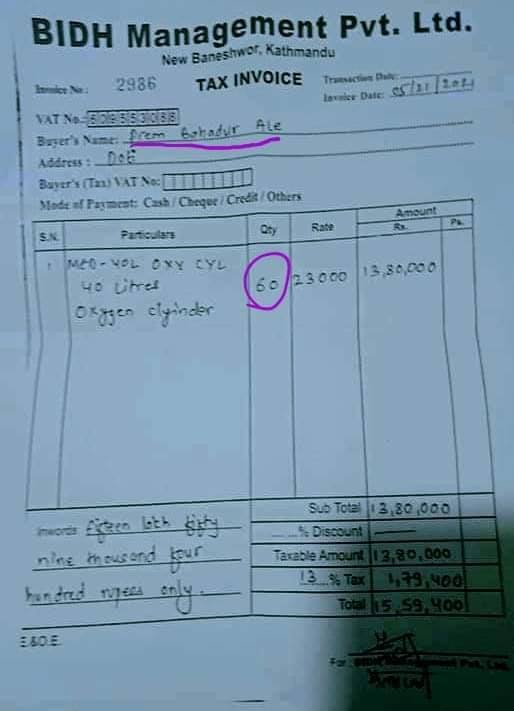 BIDH Management Pvt. Ltd.
New Baneshwor, Kathmandu
Invoice No: 2986 TAX INVOICE Transaction Date:
Invoice Date: 05/21/2021
VAT No.: 609553088
Buyer's Name: Prem Bahadur Ale
Address: Doti
Buyer's (Tax) VAT No:
Mode of Payment: Cash / Cheque / Credit / Others
S.N. Particulars Qty Rate Amount
Rs. Ps.
1 MED-40L OXY CYL 60 23000 13,80,000
40 Litres
Oxygen clyinder
Sub Total 13,80,000
Inwords fifteen lakh fifty ......% Discount —
nine thousand four Taxable Amount 13,80,000
hundred rupees only. 13...% Tax 1,79,400
Total 15,59,400
E.&O.E.
For: Management Pvt. Ltd.